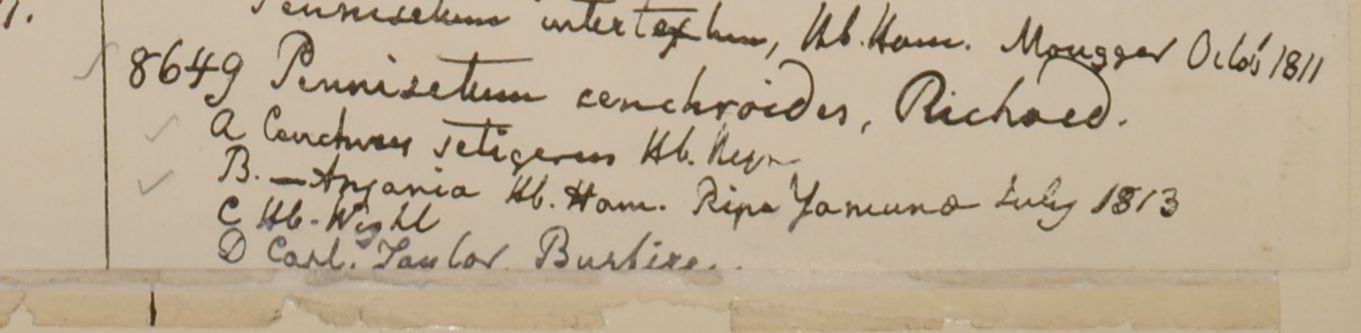 Pennisetum intertextum, Hb. Ham. Mougger Octob 1811
8649 Pennisetum cenchroides, Richard.
A Cenchrus setigerus Hb.
B. — Anjania Hb. Ham. Ripa Yamuna July 1813
C Hb. Wight
D Capt. Taylor Bushire.